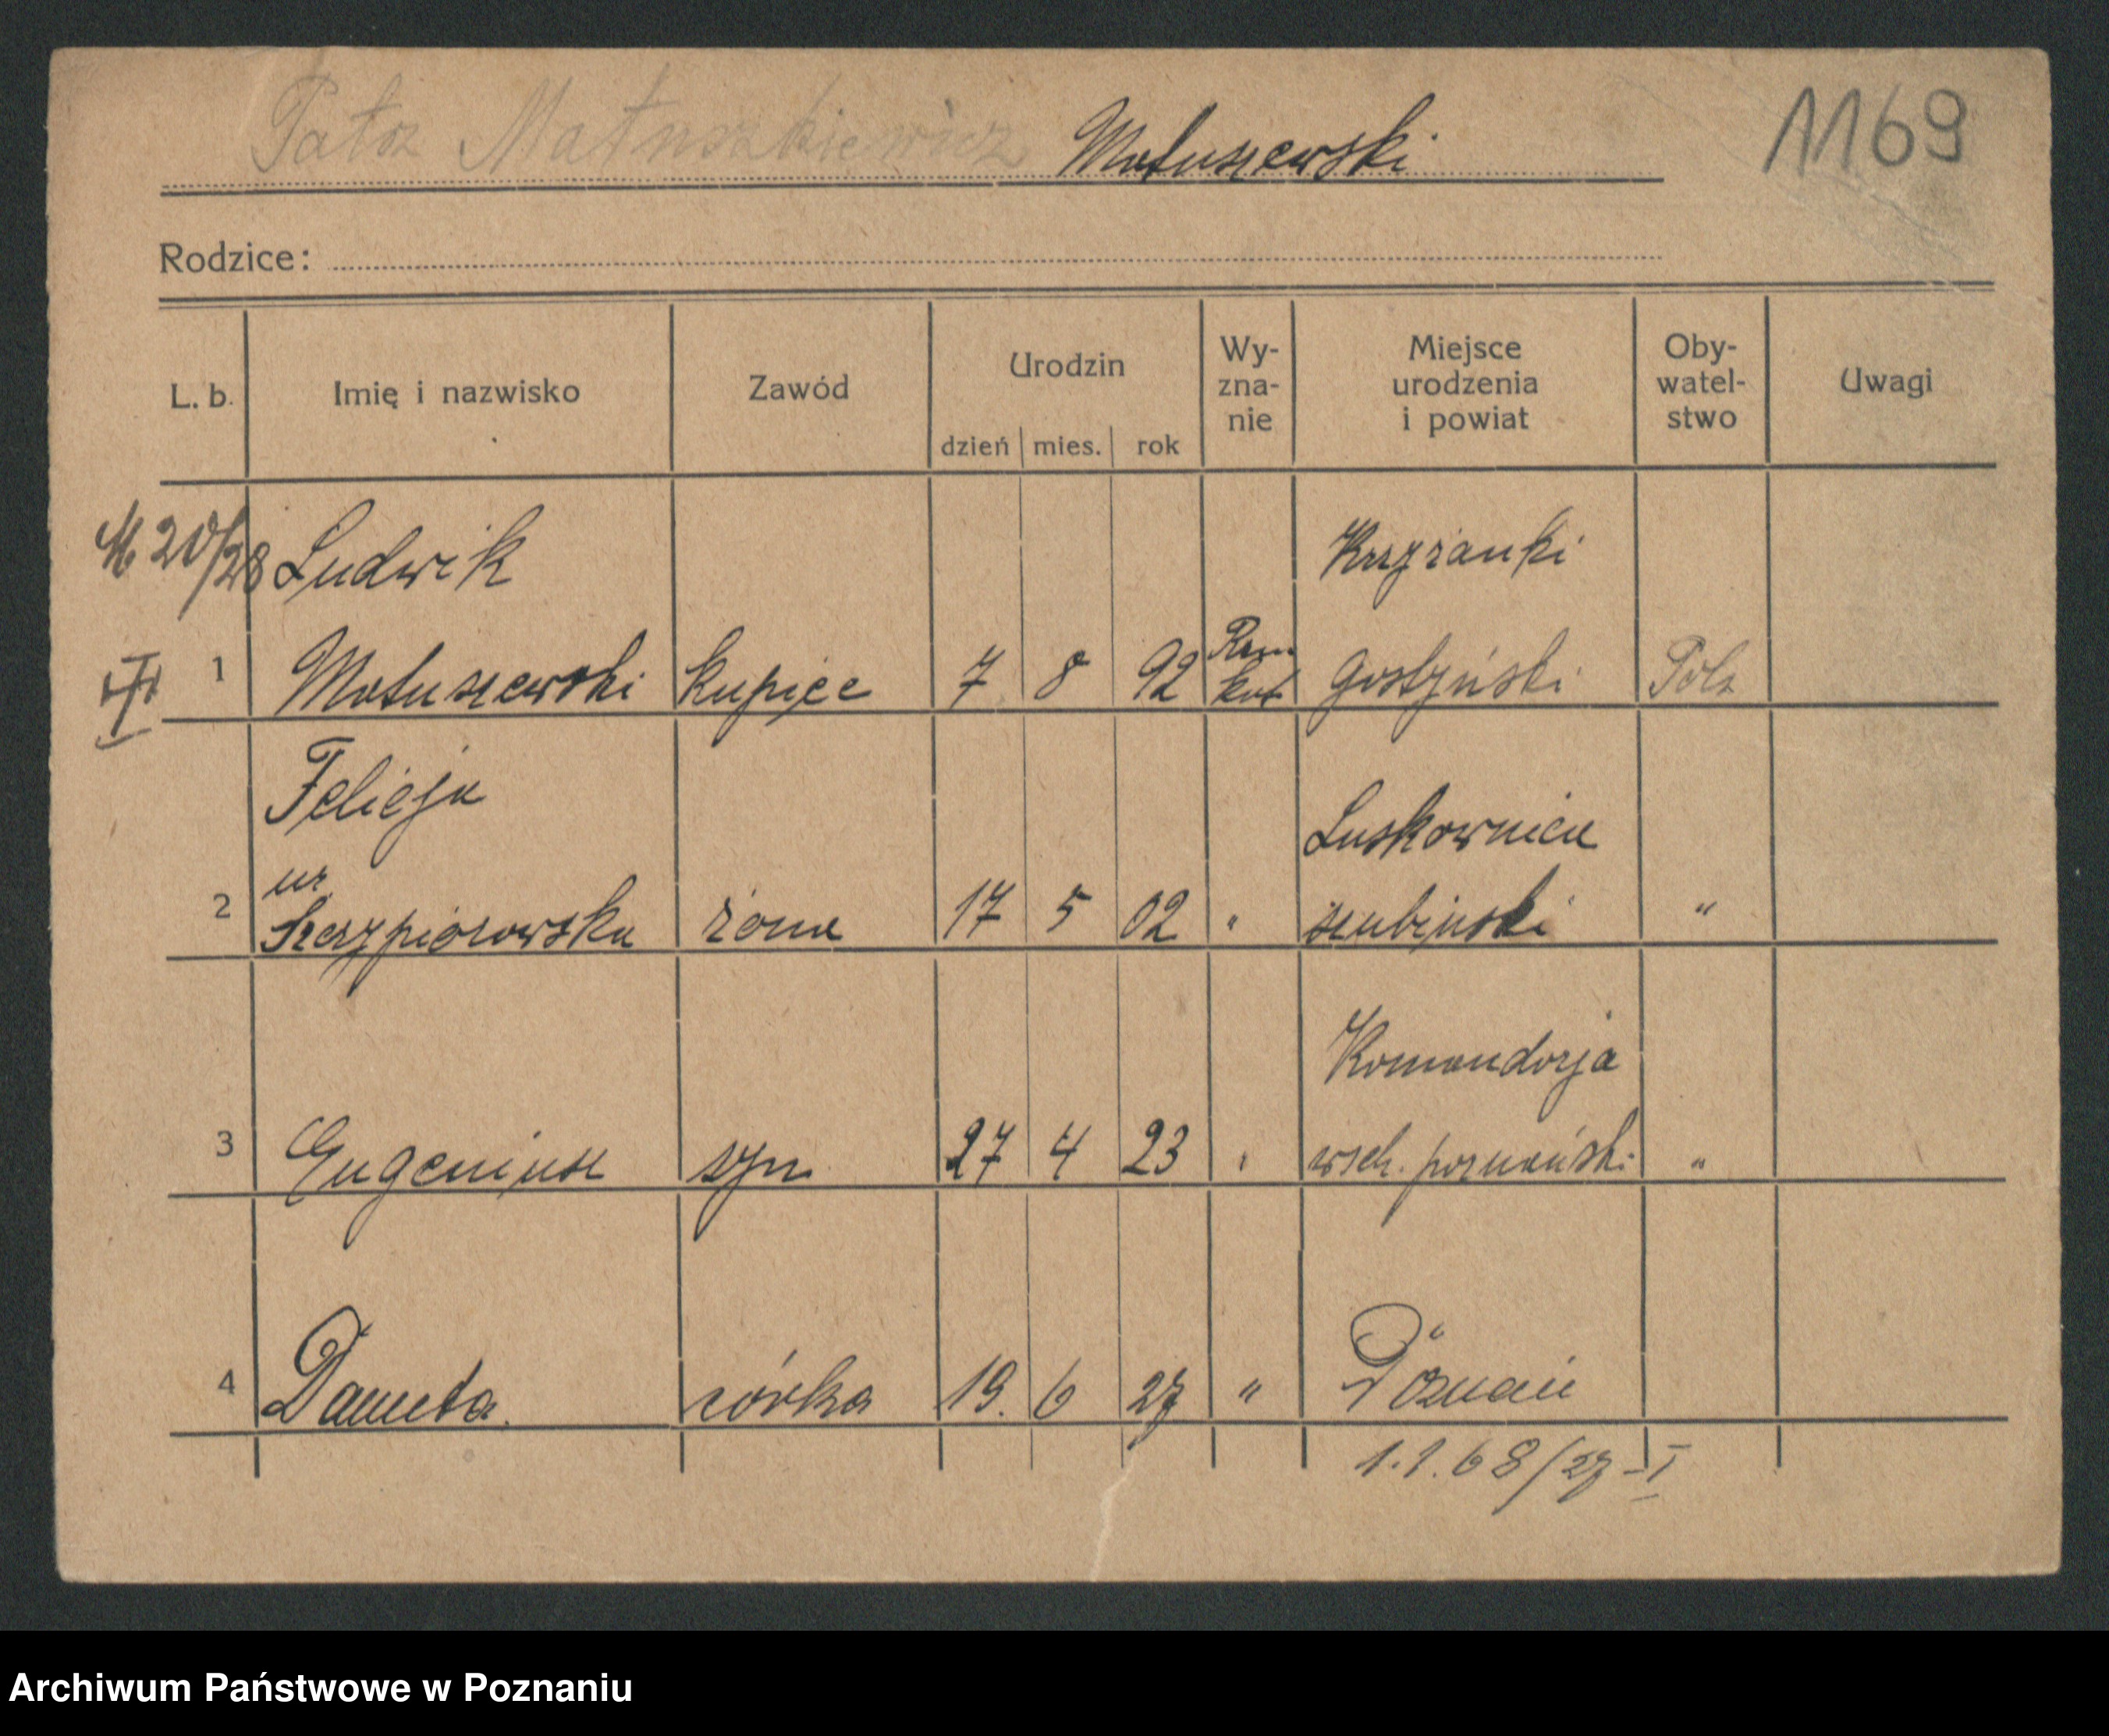 Patrz Matuszkiewicz Matuszewski
1169
Rodzice:
L. b. Imię i nazwisko Zawód Urodzin dzień mies. rok Wy-zna-nie Miejsce urodzenia i powiat Oby-watel-stwo Uwagi
M 20/28 Ludwik Krzyżanki
1 Matuszewski kupiec 7 8 92 Rzm kat gostyński Pols
Felicja Laskownica
ur
2 Szczypiorowska żona 17 5 02 " szubiński "
Komandorja
3 Eugeniusz syn 27 4 23 " wsch. poznański "
4 Danuta córka 19. 6 27 " Poznań
1.1.68/27-I
Archiwum Państwowe w Poznaniu